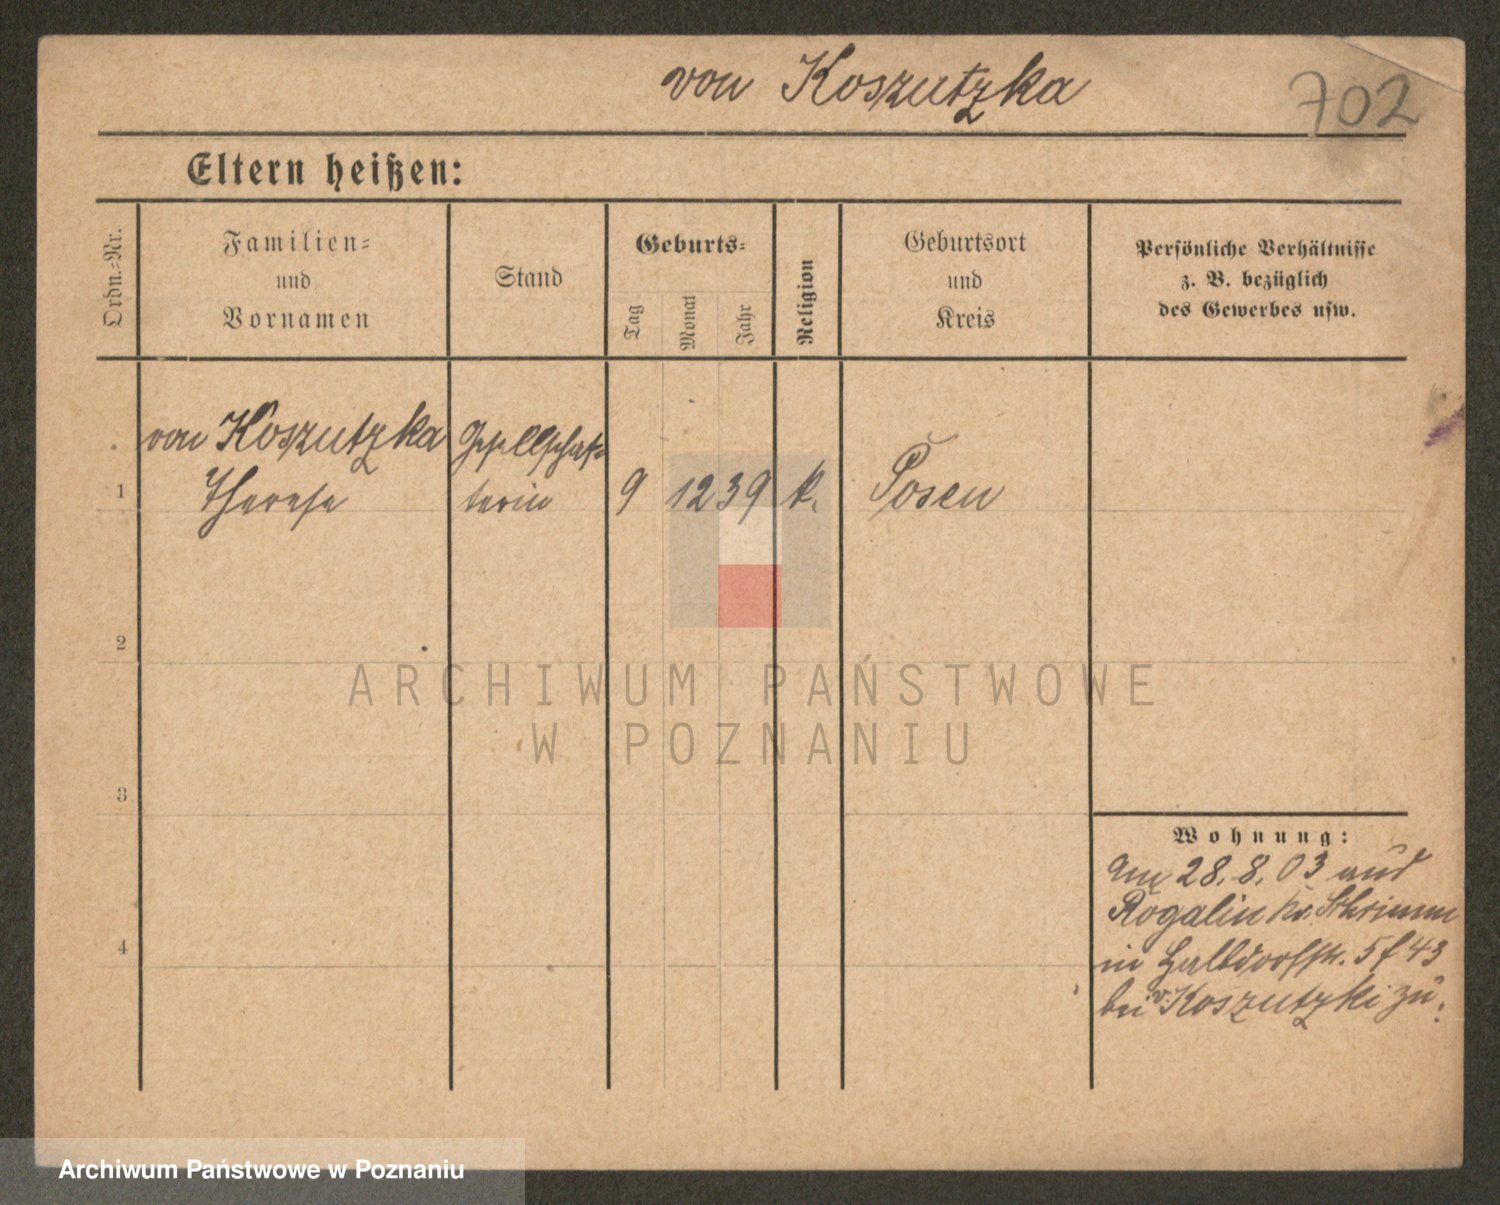 von Koszutzka
702
Eltern heißen:
Ordn.-Nr.
Familien-
und
Vornamen
Stand
Geburts-
Tag
Monat
Jahr
Religion
Geburtsort
und
Kreis
Persönliche Verhältnisse
z. B. bezüglich
des Gewerbes usw.
1
von Koszutzka
Therese
Gesellschaf-
terin
9
12
39
k.
Posen
2
3
4
Wohnung:
Am 28. 8. 03 aus
Rogalin Kr. Schrimm
in Halbdorfstr. 5 b 43
bei v. Koszutzki zu.
ARCHIWUM PAŃSTWOWE
W POZNANIU
Archiwum Państwowe w Poznaniu